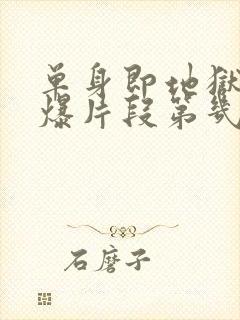 单身即地狱
爆片段第几
石磨子